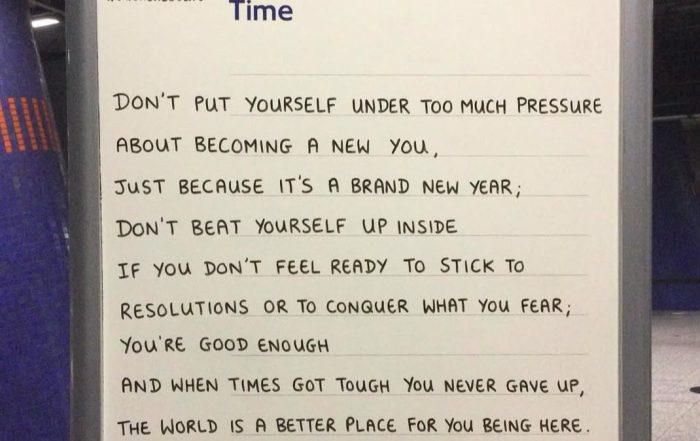 Time
DON'T PUT YOURSELF UNDER TOO MUCH PRESSURE
ABOUT BECOMING A NEW YOU,
JUST BECAUSE IT'S A BRAND NEW YEAR;
DON'T BEAT YOURSELF UP INSIDE
IF YOU DON'T FEEL READY TO STICK TO
RESOLUTIONS OR TO CONQUER WHAT YOU FEAR;
YOU'RE GOOD ENOUGH
AND WHEN TIMES GOT TOUGH YOU NEVER GAVE UP,
THE WORLD IS A BETTER PLACE FOR YOU BEING HERE.